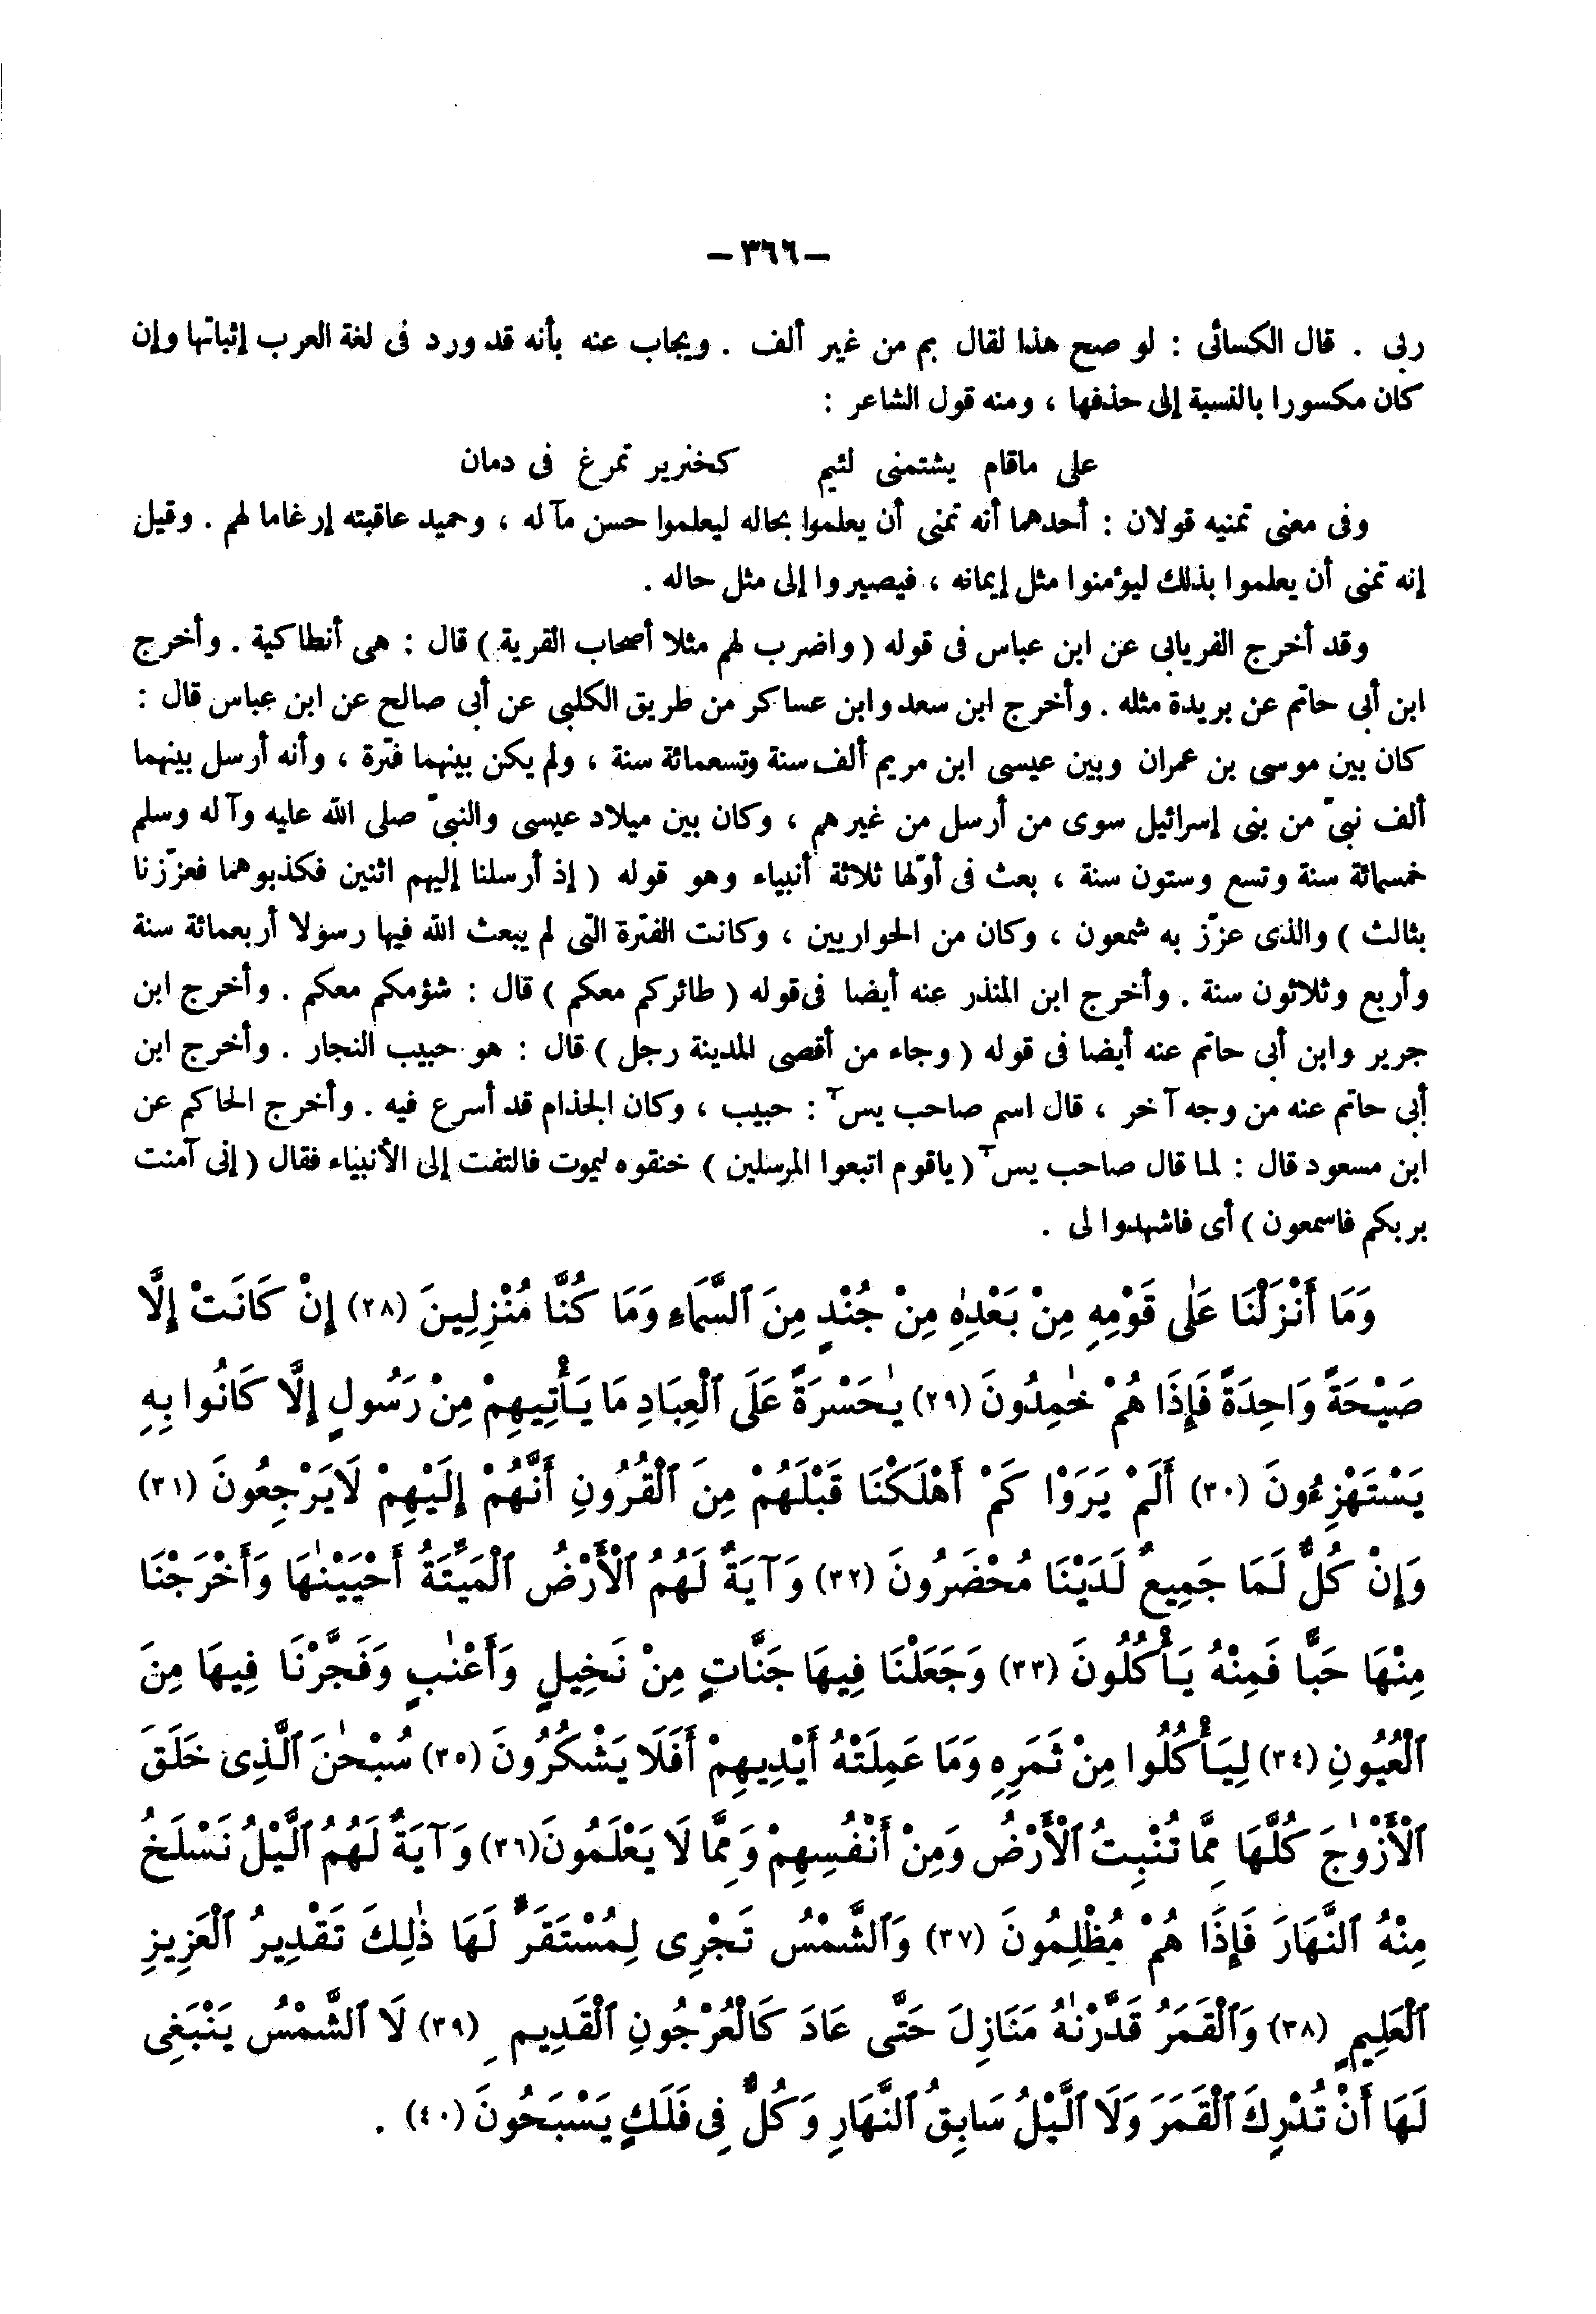 – ٣٦٦ –
ربى . قال الكسائى : لو صح هذا لقال بم من غير ألف . ويجاب عنه بأنه قد ورد فى لغة العرب إثباتها وإن
كان مكسورا بالنسبة إلى حذفها ، ومنه قول الشاعر :
على ماقام يشتمنى لئيم كخنرير تمرغ فى دمان
وفى معنى تمنيه قولان : أحدهما أنه تمنى أن يعلموا بحاله ليعلموا حسن مآله ، وحميد عاقبته إرغاما لهم . وقيل
إنه تمنى أن يعلموا بذلك ليؤمنوا مثل إيمانه ، فيصيروا إلى مثل حاله .
وقد أخرج الفريابى عن ابن عباس فى قوله ( واضرب لهم مثلا أصحاب القرية ) قال : هى أنطاكية . وأخرج
ابن أبى حاتم عن بريدة مثله . وأخرج ابن سعد وابن عساكر من طريق الكلبى عن أبى صالح عن ابن عباس قال :
كان بين موسى بن عمران وبين عيسى ابن مريم ألف سنة وتسعمائة سنة ، ولم يكن بينهما فترة ، وأنه أرسل بينهما
ألف نبىّ من بنى إسرائيل سوى من أرسل من غيرهم ، وكان بين ميلاد عيسى والنبىّ صلى الله عليه وآله وسلم
خمسمائة سنة وتسع وستون سنة ، بعث فى أوّلها ثلاثة أنبياء وهو قوله ( إذ أرسلنا إليهم اثنين فكذبوهما فعزّزنا
بثالث ) والذى عزّز به شمعون ، وكان من الحواريين ، وكانت الفترة التى لم يبعث الله فيها رسولا أربعمائة سنة
وأربع وثلاثون سنة . وأخرج ابن المنذر عنه أيضا فى قوله ( طائركم معكم ) قال : شؤمكم معكم . وأخرج ابن
جرير وابن أبى حاتم عنه أيضا فى قوله ( وجاء من أقصى المدينة رجل ) قال : هو حبيب النجار . وأخرج ابن
أبى حاتم عنه من وجه آخر ، قال اسم صاحب يسۤ : حبيب ، وكان الجذام قد أسرع فيه . وأخرج الحاكم عن
ابن مسعود قال : لما قال صاحب يسۤ ( ياقوم اتبعوا المرسلين ) خنقوه ليموت فالتفت إلى الأنبياء فقال ( إنى آمنت
بربكم فاسمعون ) أى فاشهدوا لى .
وَمَا أَنْزَلْنَا عَلٰى قَوْمِهِ مِنْ بَعْدِهِ مِنْ جُنْدٍ مِنَ ٱلسَّمَاءِ وَمَا كُنَّا مُنْزِلِينَ (٢٨) إِنْ كَانَتْ إِلَّا
صَيْحَةً وَاحِدَةً فَإِذَا هُمْ خٰمِدُونَ (٢٩) يٰحَسْرَةً عَلَى ٱلْعِبَادِ مَا يَأْتِيهِمْ مِنْ رَسُولٍ إِلَّا كَانُوا بِهِ
يَسْتَهْزِءُونَ (٣٠) أَلَمْ يَرَوْا كَمْ أَهْلَكْنَا قَبْلَهُمْ مِنَ ٱلْقُرُونِ أَنَّهُمْ إِلَيْهِمْ لَايَرْجِعُونَ (٣١)
وَإِنْ كُلٌّ لَمَا جَمِيعٌ لَدَيْنَا مُحْضَرُونَ (٣٢) وَآيَةٌ لَهُمُ ٱلْأَرْضُ ٱلْمَيِّتَةُ أَحْيَيْنٰهَا وَأَخْرَجْنَا
مِنْهَا حَبًّا فَمِنْهُ يَأْكُلُونَ (٣٣) وَجَعَلْنَا فِيهَا جَنَّاتٍ مِنْ نَخِيلٍ وَأَعْنٰبٍ وَفَجَّرْنَا فِيهَا مِنَ
ٱلْعُيُونِ (٣٤) لِيَأْكُلُوا مِنْ ثَمَرِهِ وَمَا عَمِلَتْهُ أَيْدِيهِمْ أَفَلَا يَشْكُرُونَ (٣٥) سُبْحٰنَ ٱلَّذِى خَلَقَ
ٱلْأَزْوٰجَ كُلَّهَا مِمَّا تُنْبِتُ ٱلْأَرْضُ وَمِنْ أَنْفُسِهِمْ وَمِمَّا لَا يَعْلَمُونَ (٣٦) وَآيَةٌ لَهُمُ ٱلَّيْلُ نَسْلَخُ
مِنْهُ ٱلنَّهَارَ فَإِذَا هُمْ مُظْلِمُونَ (٣٧) وَٱلشَّمْسُ تَجْرِى لِمُسْتَقَرٍّ لَهَا ذٰلِكَ تَقْدِيرُ ٱلْعَزِيزِ
ٱلْعَلِيمِ (٣٨) وَٱلْقَمَرُ قَدَّرْنٰهُ مَنَازِلَ حَتَّى عَادَ كَالْعُرْجُونِ ٱلْقَدِيمِ (٣٩) لَا ٱلشَّمْسُ يَنْبَغِى
لَهَا أَنْ تُدْرِكَ ٱلْقَمَرَ وَلَا ٱلَّيْلُ سَابِقُ ٱلنَّهَارِ وَكُلٌّ فِى فَلَكٍ يَسْبَحُونَ (٤٠) .